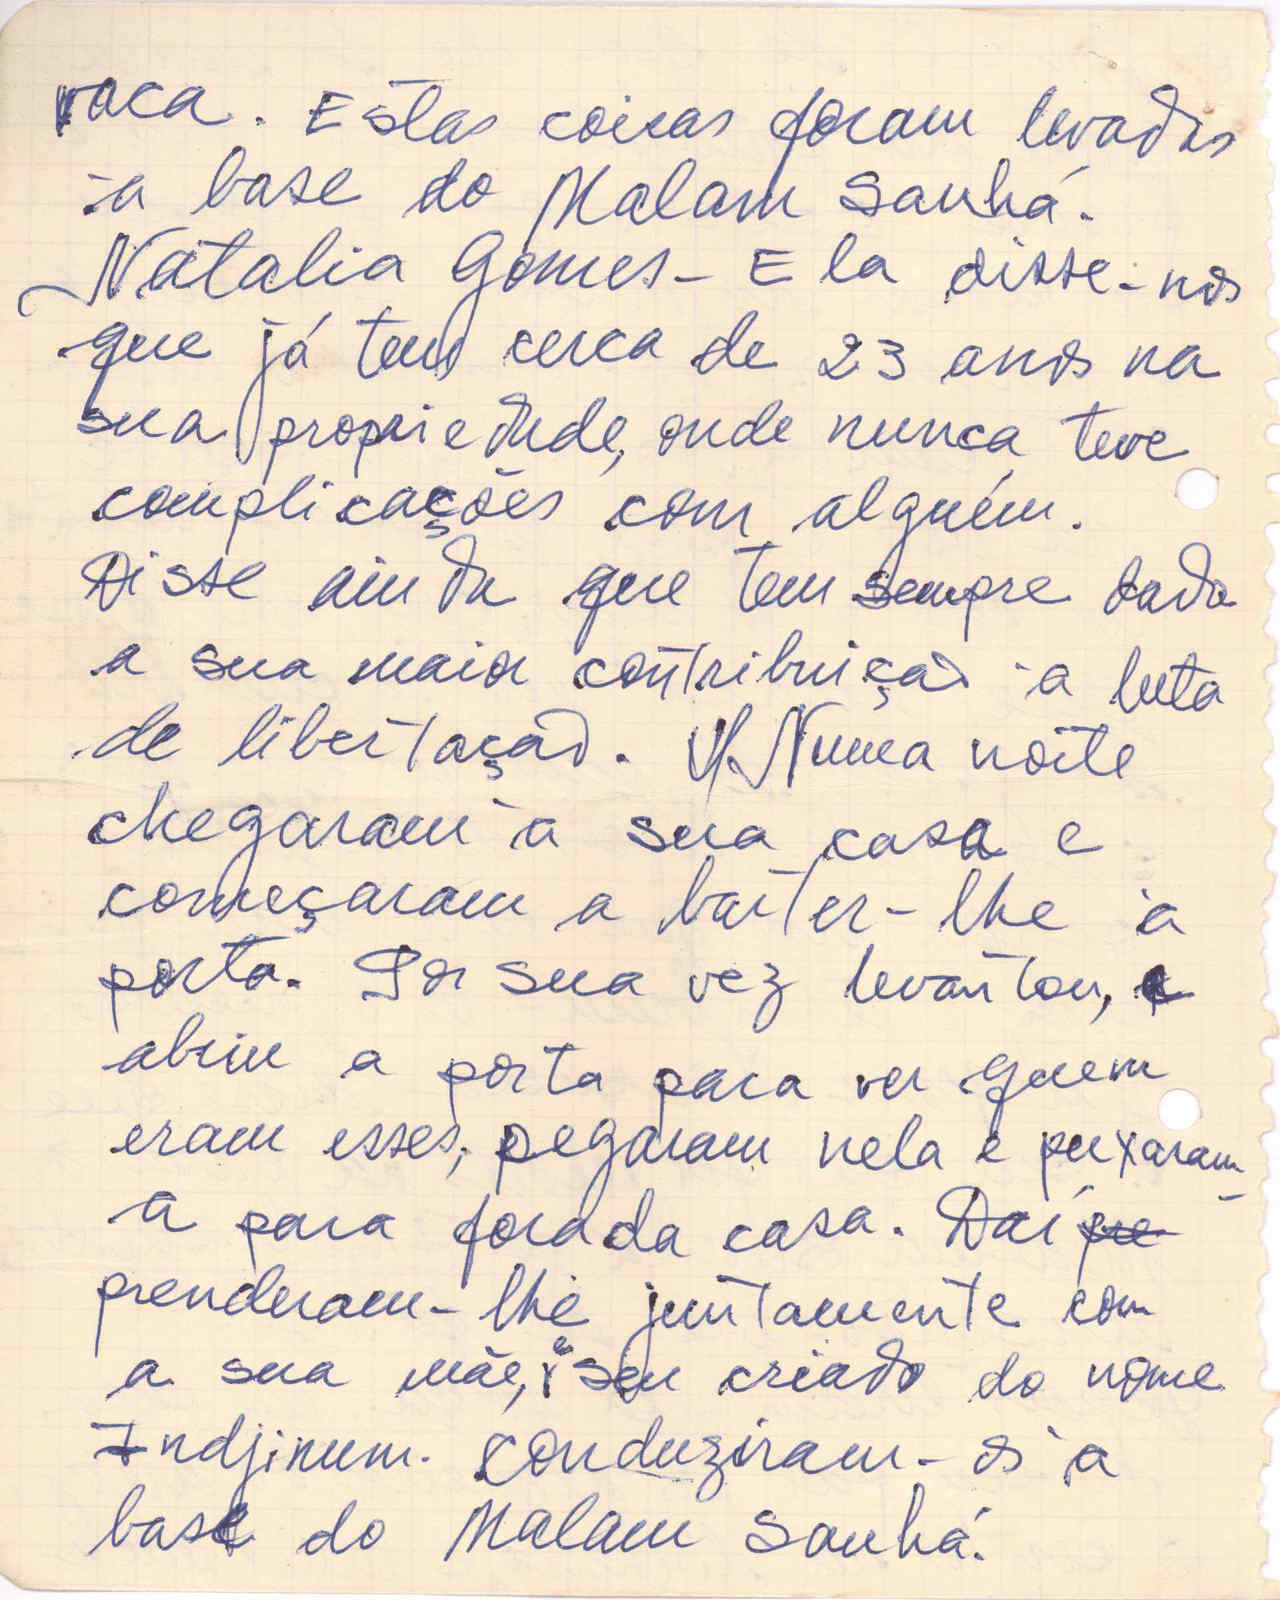 vaca. Estas coisas foram levadas
à base do Malam Sanhá.
Natalia Gomes - Ela disse-nos
que já tem cerca de 23 anos na
sua propriedade, onde nunca teve
complicações com alguém.
Disse ainda que tem sempre dado
a sua maior contribuição à luta
de libertação. Numa noite
chegaram à sua casa e
começaram a bater-lhe à
porta. Por sua vez levantou, e
abriu a porta para ver quem
eram esses, pegaram nela e puxaram-
a para fora da casa. Daí pre
prenderam-lhe juntamente com
a sua mãe, e seu criado do nome
Indjinum. Conduziram-os à
base do Malam Sanhá.